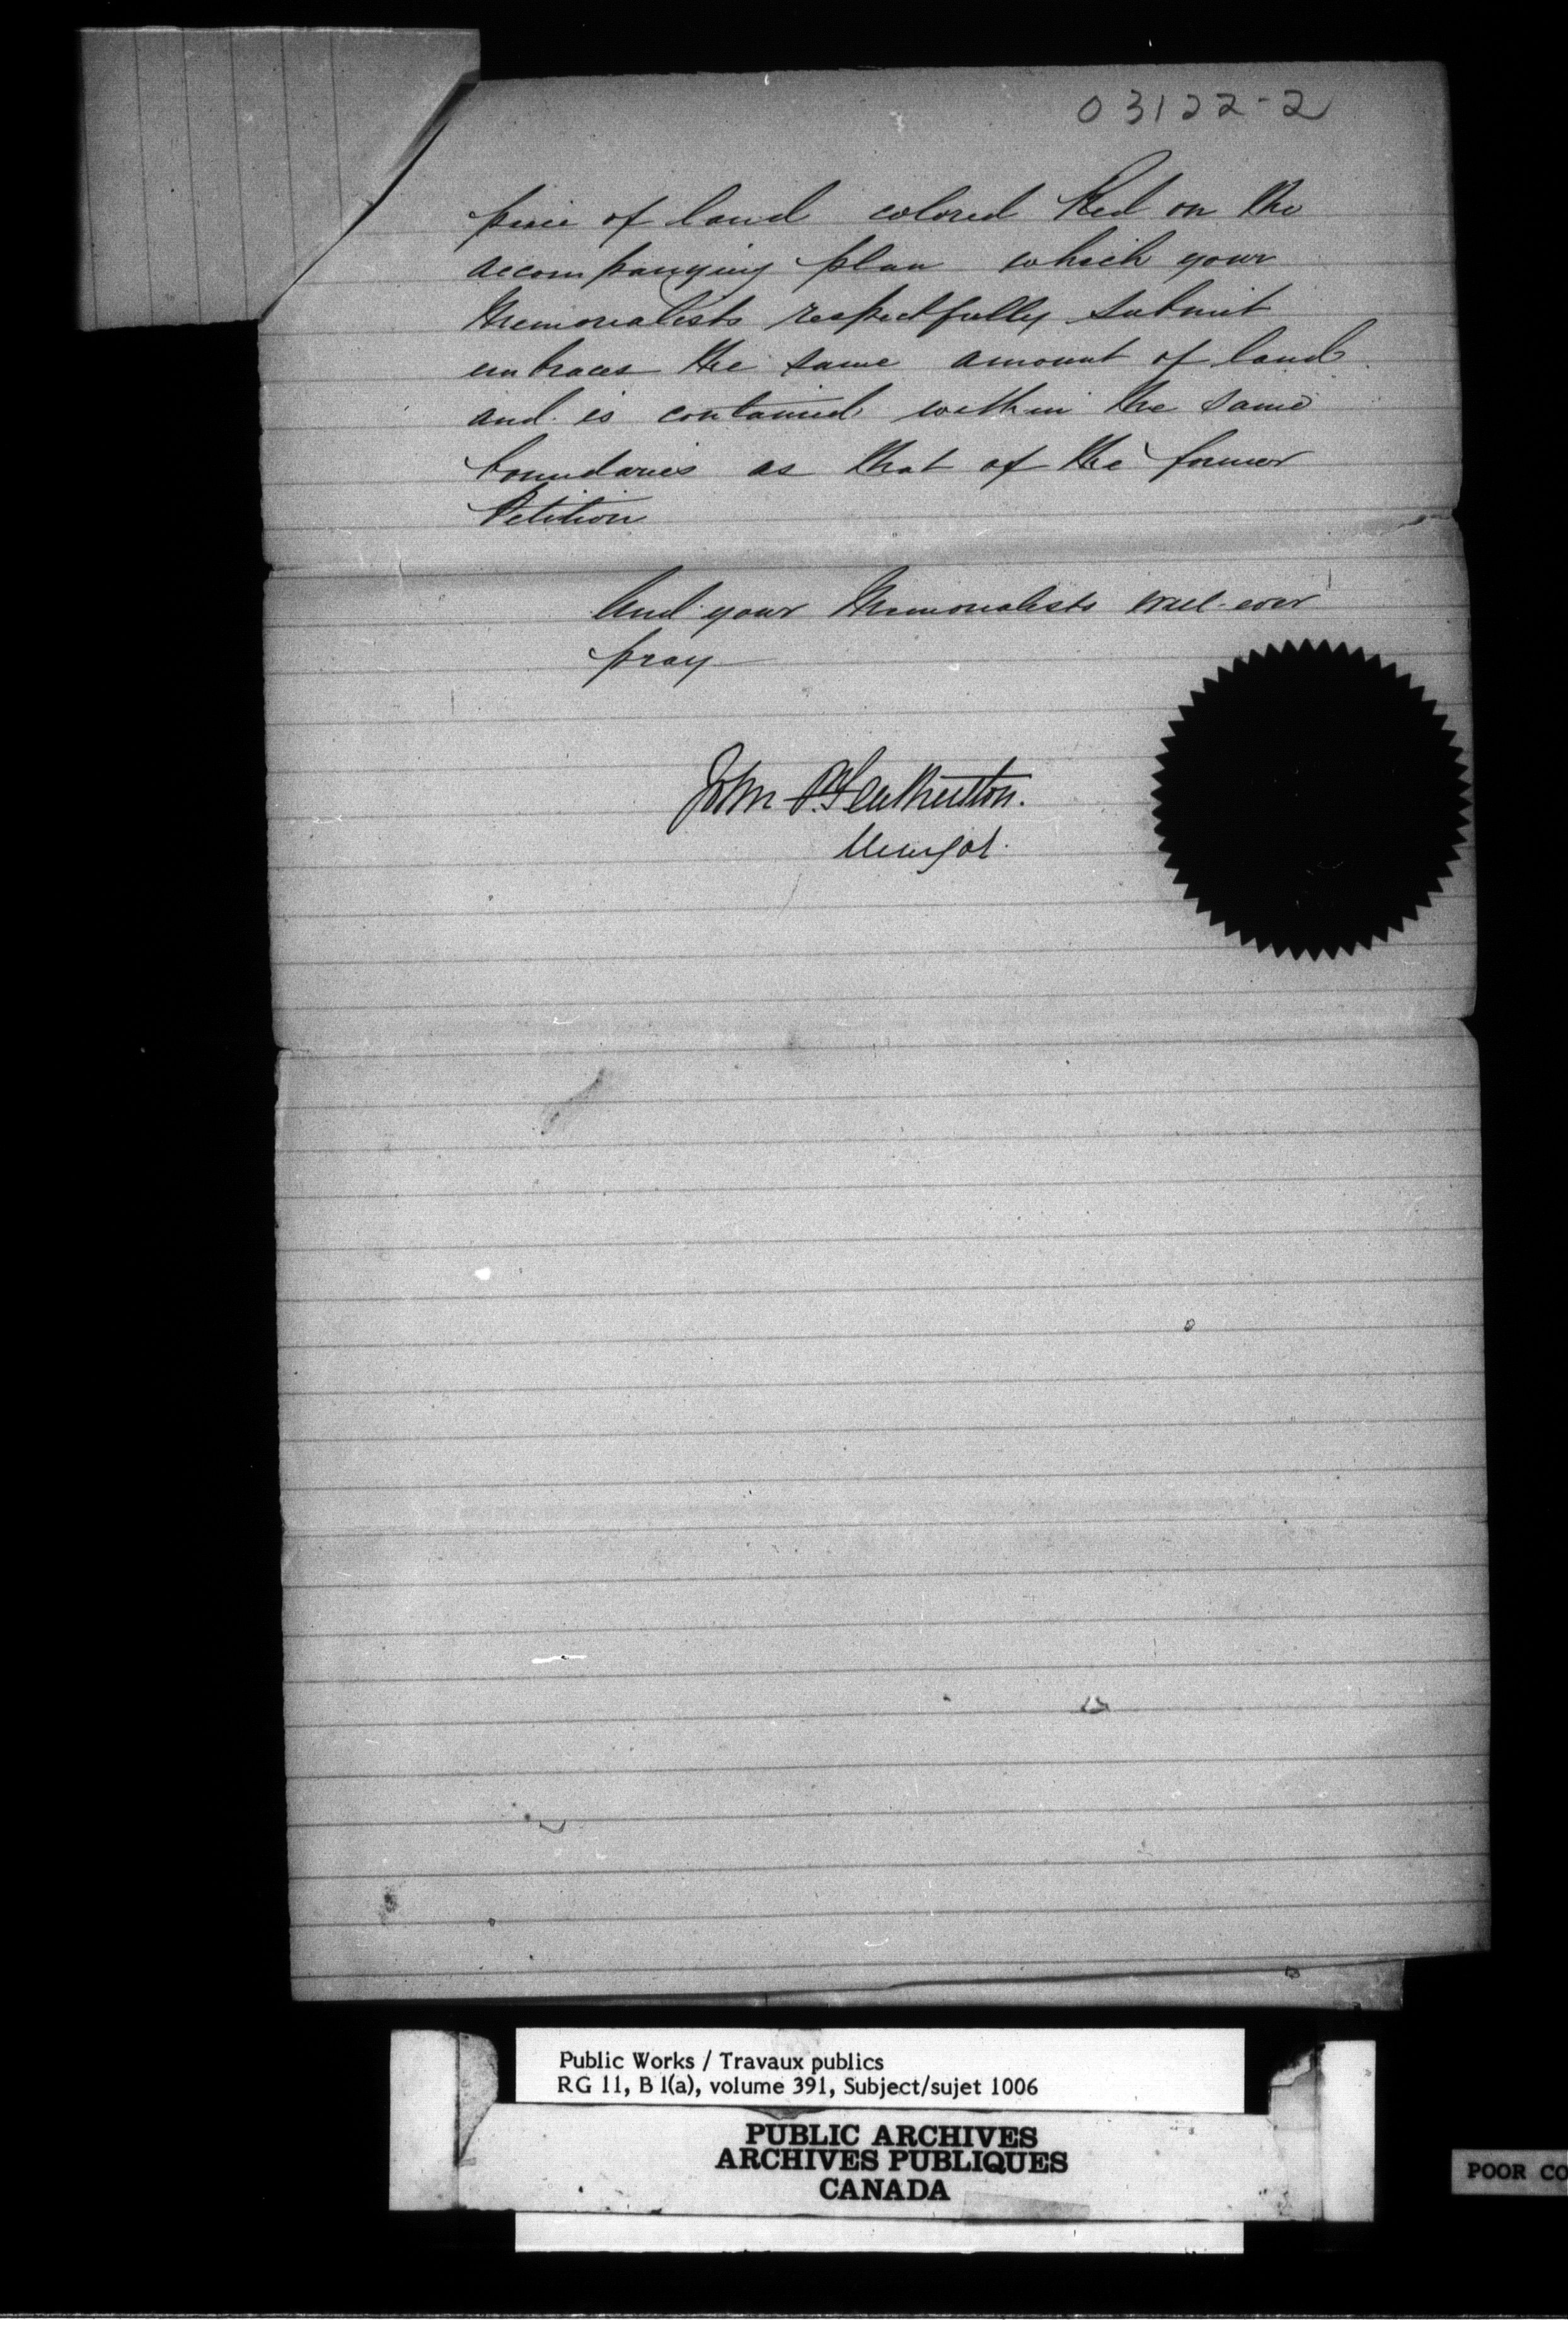 03122-2
piece of land colored Red on the
accompanying plan which your
Memorialists respectfully submit
embraces the same amount of land
and is contained within the same
boundaries as that of the former
Petition
And your Memorialists will ever
pray
John P. Featherston.
Mayor.
Public Works / Travaux publics
RG 11, B 1(a), volume 391, Subject/sujet 1006
PUBLIC ARCHIVES
ARCHIVES PUBLIQUES
CANADA
POOR CO